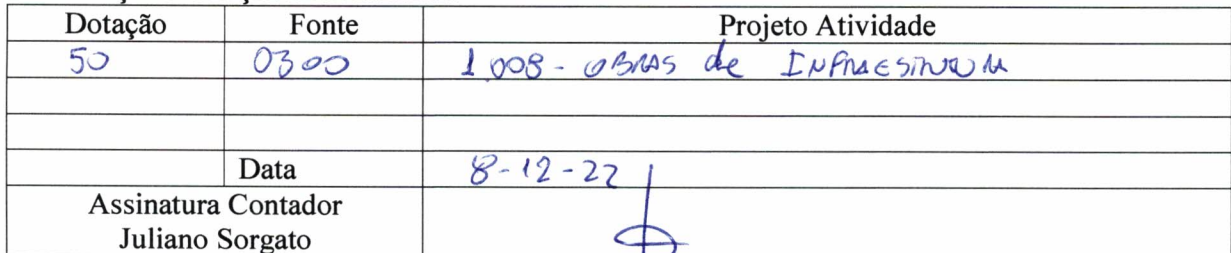 Dotação Fonte Projeto Atividade
50 0300 1008 - OBRAS de INFRAESTRUTURA
Data 8-12-22
Assinatura Contador
Juliano Sorgato